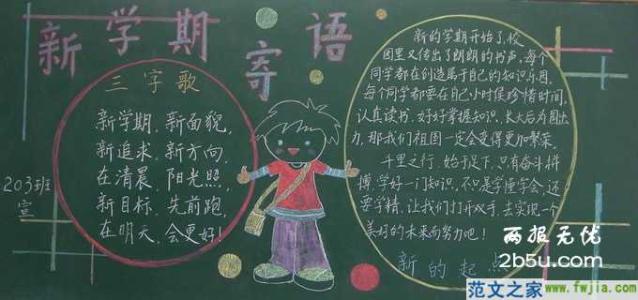 新学期寄语
三字歌
新学期,新面貌,
新追求,新方向.
在清晨,阳光照,
新目标,先前跑,
在明天,会更好!
203班
宣
新的学期开始了,校
园里又传出了朗朗的书声,每个
同学都在创造属于自己的知识乐园.
每个同学都要在自己小时侯珍惜时间,
认真读书,好好掌握知识,长大后为国出
力,那我们祖国一定会变得更加繁荣.
千里之行,始于足下,只有奋斗拼
博,学好一门知识,不只是学懂学会,还
要学精,让我们打开双手,去实现一个
美好的未来而努力吧!
新的起点
两报无优
2b5u.com
范文之家
www.fwjia.com